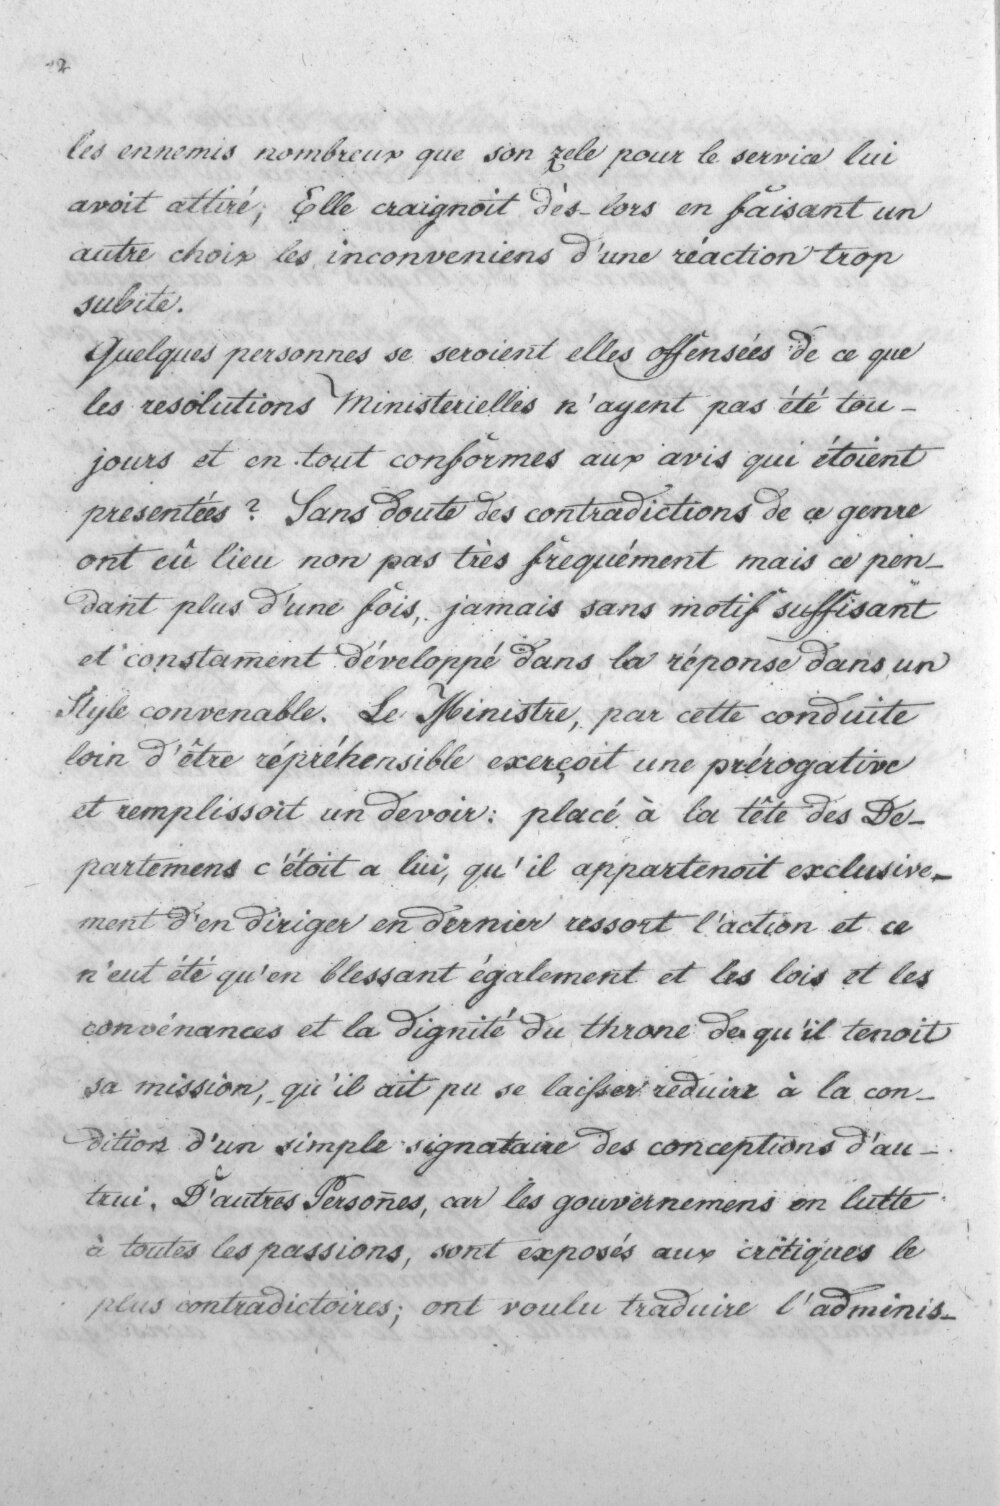 2
les ennemis nombreux que son zele pour le service lui
avoit attiré; Elle craignoit dès-lors en faisant un
autre choix les inconveniens d'une réaction trop
subite.
Quelques personnes se seroient elles offensées de ce que
les resolutions Ministerielles n'ayent pas été tou-
jours et en tout conformes aux avis qui étoient
presentées? Sans doute des contradictions de ce genre
ont eû lieu non pas très frequément mais ce pen-
dant plus d'une fois, jamais sans motif suffisant
et constament développé dans la réponse dans un
Style convenable. Le Ministre, par cette conduite
loin d'être répréhensible exerçoit une prérogative
et remplissoit un devoir: placé à la tête des De-
partemens c'étoit a lui, qu'il appartenoit exclusive-
ment d'en diriger en dernier ressort l'action et ce
n'eut été qu'en blessant également et les lois et les
convénances et la dignité du throne de qu'il tenoit
sa mission, qu'il ait pu se laisser reduire à la con-
dition d'un simple signataire des conceptions d'au-
trui. D'autres Persoñes, car les gouvernemens en lutte
à toutes les passions, sont exposés aux critiques le
plus contradictoires; ont voulu traduire l'adminis-